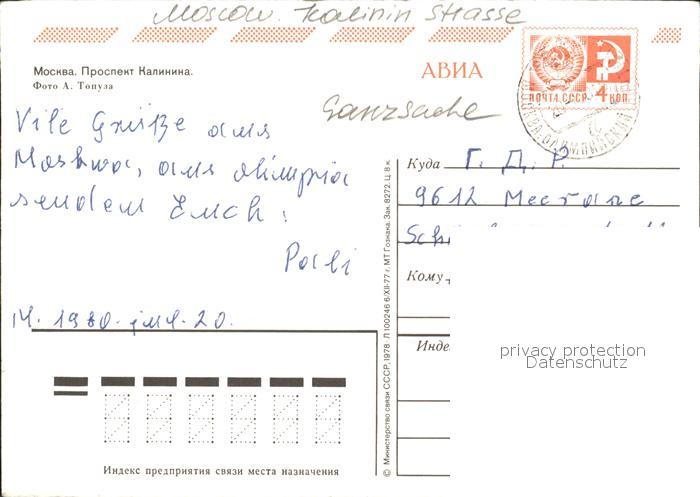 Moscow. Kalinin Strasse
Москва. Проспект Калинина.
Фото А. Топуза
АВИА
Ganzsache
ПОЧТА СССР 4 КОП
Vile Grüße aus
Moskwa, aus olimpia
senden Euch:
Куда Г. Д. Р.
9612 Meerane
Кому
Индек
14. 1980. јul. 20.
privacy protection
Datenschutz
Индекс предприятия связи места назначения
© Министерство связи СССР, 1978. Л 100246 6/XII-77 г. МТ Гознака. Зак. 8272. Ц. 8 к.